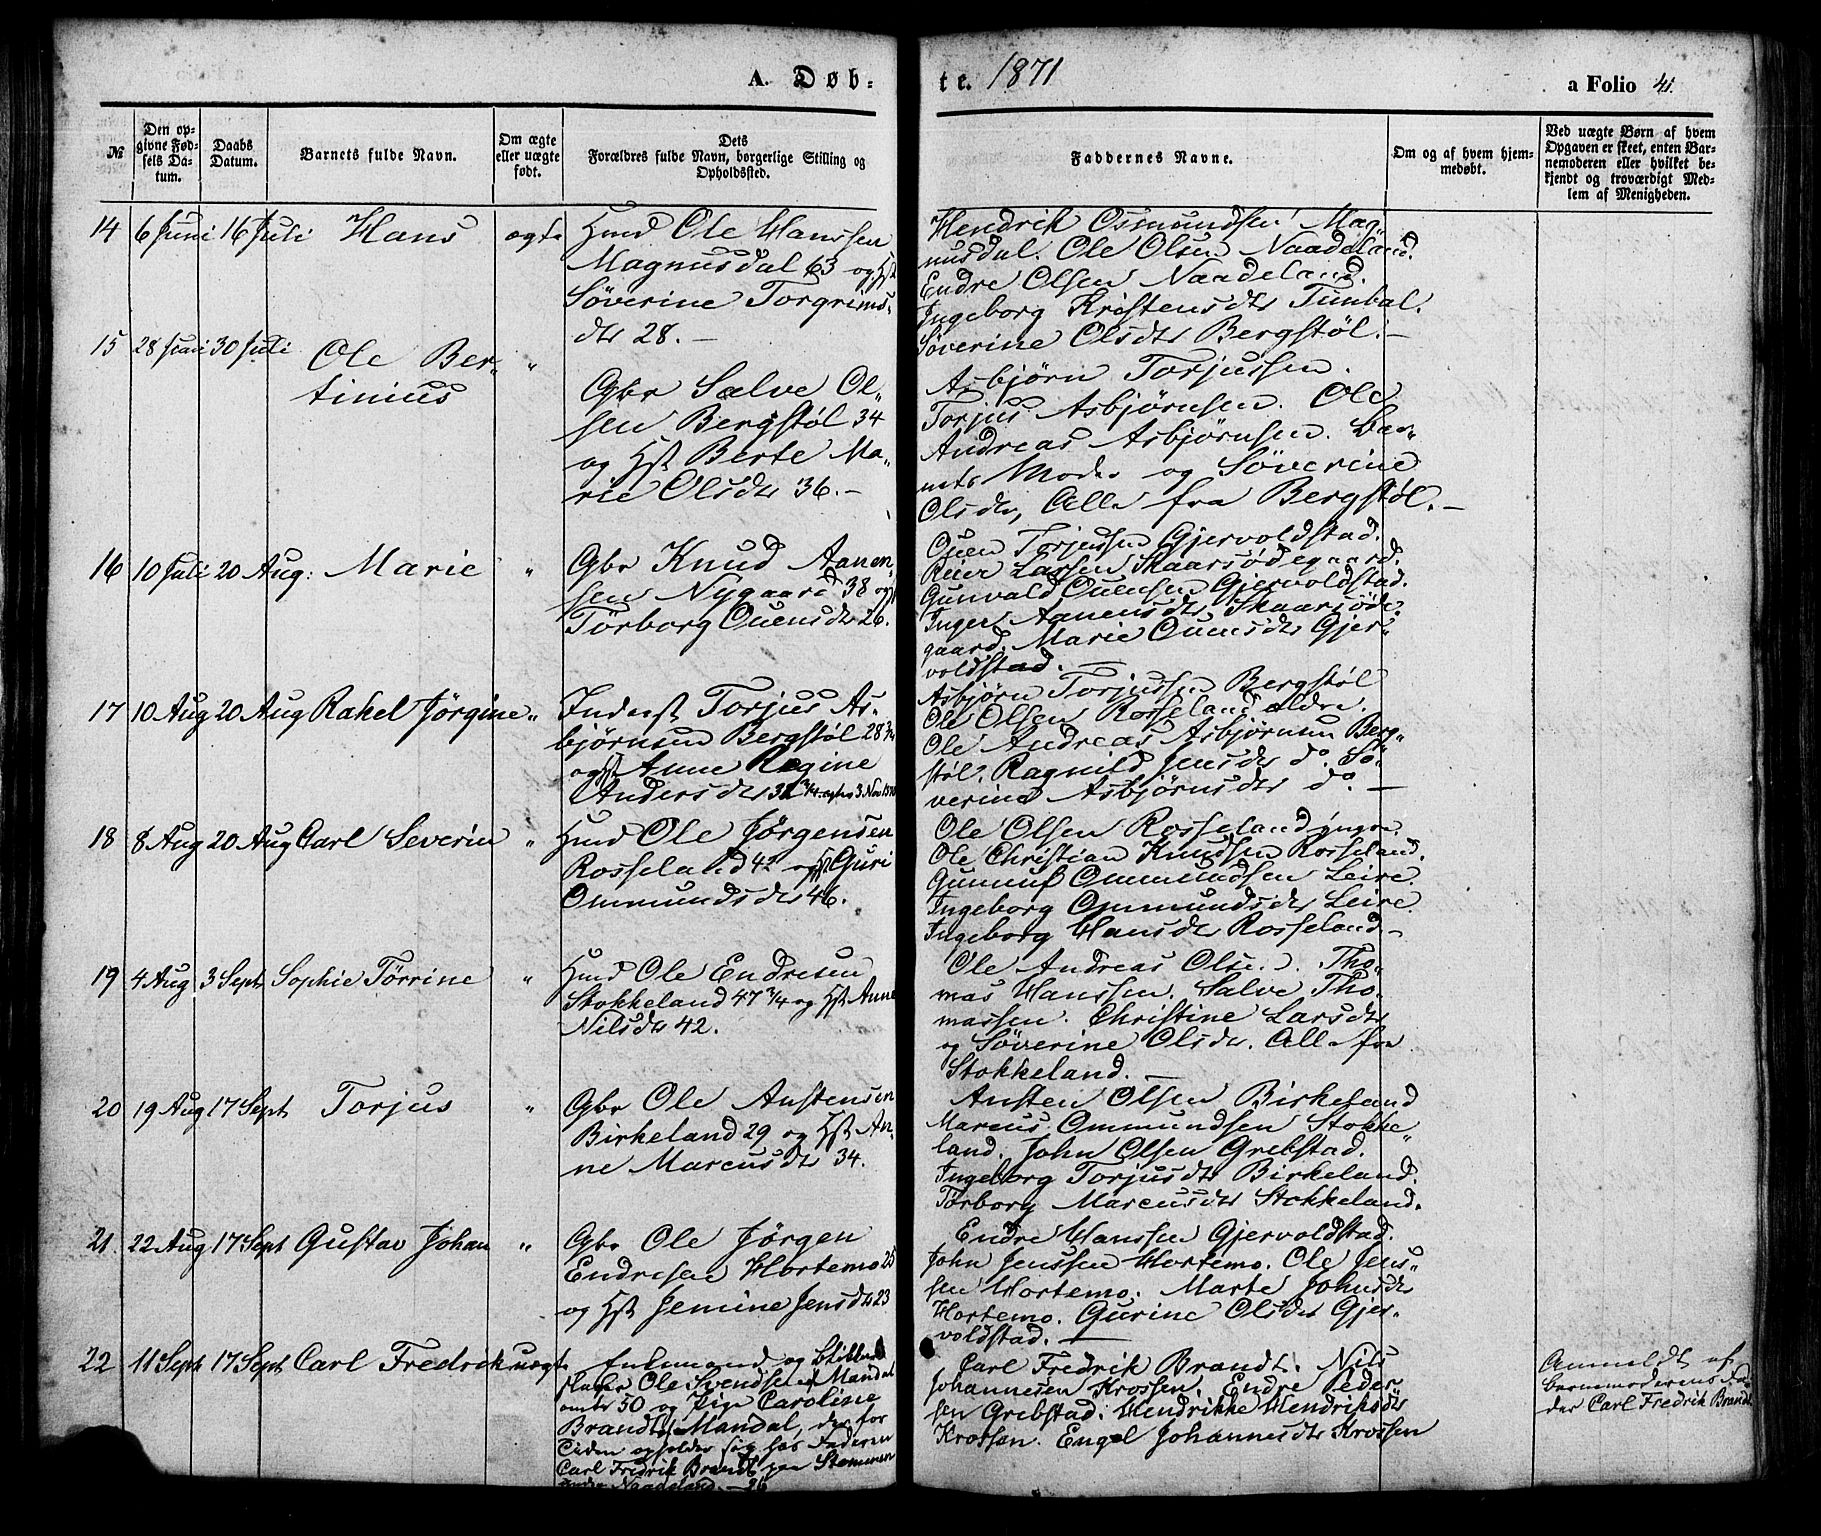 A. Døb-
te. 1871
a Folio 41.
№
Den opgivne Fødsels Datum.
Daabs Datum.
Barnets fulde Navn.
Om ægte eller uægte født.
Dets Forældres fulde Navn, borgerlige Stilling og Opholdssted.
Faddernes Navne.
Om og af hvem hjemmedøbt.
Ved uægte Børn af hvem Opgaven er skeet, enten Barnemoderen eller hvilket bekjendt og troværdigt Medlem af Menigheden.
14 6 Juni 16 Juli Hans ægte
Hmd Ole Hanssen
Magnusdal 63 og Hst
Söverine Torgrims-
dtr 28. –
Hendrik Osmundsen Mag-
nusdal. Ole Olsen Naadeland.
Endre Olsen Naadeland.
Ingeborg Kristensdtr Tunbal.
Söverine Olsdtr Bergstøl. –
15 28 Juni 30 Juli Ole Ber-
tinius "
Gbr Sælve Ol-
sen Bergstøl 34
og Hst Berte Ma-
rie Olsdtr 36. –
Asbjørn Torjussen.
Torjus Asbjørnsen. Ole
Andreas Asbjørnsen. Bar-
nets Moder og Söverine
Olsdtr, Alle fra Bergstøl. –
16 10 Juli 20 Aug: Marie "
Gbr Knud Aanen-
sen Nygaard 38 og Hst
Tørborg Ouensdtr 26.
Ouen Torjussen Gjervoldstad.
Reier Larsen Skaarsødegaard.
Gunvald Ouensen Gjervoldstad.
Inger Aanensdtr Skaarsøde-
gaard. Marie Ouensdtr Gjer-
voldstad. –
17 10 Aug 20 Aug Rakel Jørgine "
Inderst Torjus As-
bjørnsen Bergstøl 28 3/4
og Hst Anne Regine
Andersdtr 32 3/4 3. Nov 1870
Asbjørn Torjussen Bergstøl
Ole Olsen Rosseland ældre.
Ole Andreas Asbjørnsen Berg-
støl. Ragnild Jensdtr do. Sö-
verine Asbjørnsdtr do. –
18 8 Aug 20 Aug Carl Severin "
Hmd Ole Jørgensen
Rosseland 42 og Hst Guri
Ommundsdtr 46.
Ole Olsen Rosseland yngre.
Ole Christian Knudsen Rosseland.
Gunnuf Ommundsen Leire.
Ingeborg Ommundsdtr Leire.
Ingeborg Hansdtr Rosseland –
19 4 Aug 3 Sept Sophie Tørrine "
Hmd Ole Endresen
Stokkeland 47 3/4 og Hst Anne
Nilsdtr 42.
Ole Andreas Olsen. Tho-
mas Hanssen. Salve Tho-
massen. Christine Larsdtr
og Söverine Olsdtr. Alle fra
Stokkeland. –
20 19 Aug 17 Sept Torjus "
Gbr Ole Anstensen
Birkeland 29 og Hst An-
ne Marcusdtr 34.
Ansten Olsen Birkeland
Marcus Ommundsen Stokke-
land. John Olsen Grebstad.
Ingeborg Torjusdtr Birkeland.
Tørborg Marcusdtr Stokkeland.
21. 22 Aug 17 Sept Gustav Johan "
Gbr Ole Jørgen
Endresen Hortemo 25
og Hst Jemine Jensdtr 23
Endre Hanssen Gjervoldstad.
John Jenssen Hortemo. Ole Jens-
sen Hortemo. Marte Johnsdtr
Hortemo. Gurine Olsdtr Gjer-
voldstad. –
22 11 Sept 17 Sept Carl Fredrik uægte
Enkemand og
Ole Svendsen af Mandal
30 og Pige Caroline
Brandt, Mandal, der for
Tiden opholder sig hos Faderen
Carl Fredrik Brandt paa
Naadeland. – 26
Carl Fredrik Brandt. Nils
Johannesen Krossen. Endre Peder-
sen Grebstad. Hendrikke Hendriksdtr
Krossen. Engel Johannesdtr Krossen
Anmeldt af
barnemoderens Fa-
der Carl Fredrik Brandt